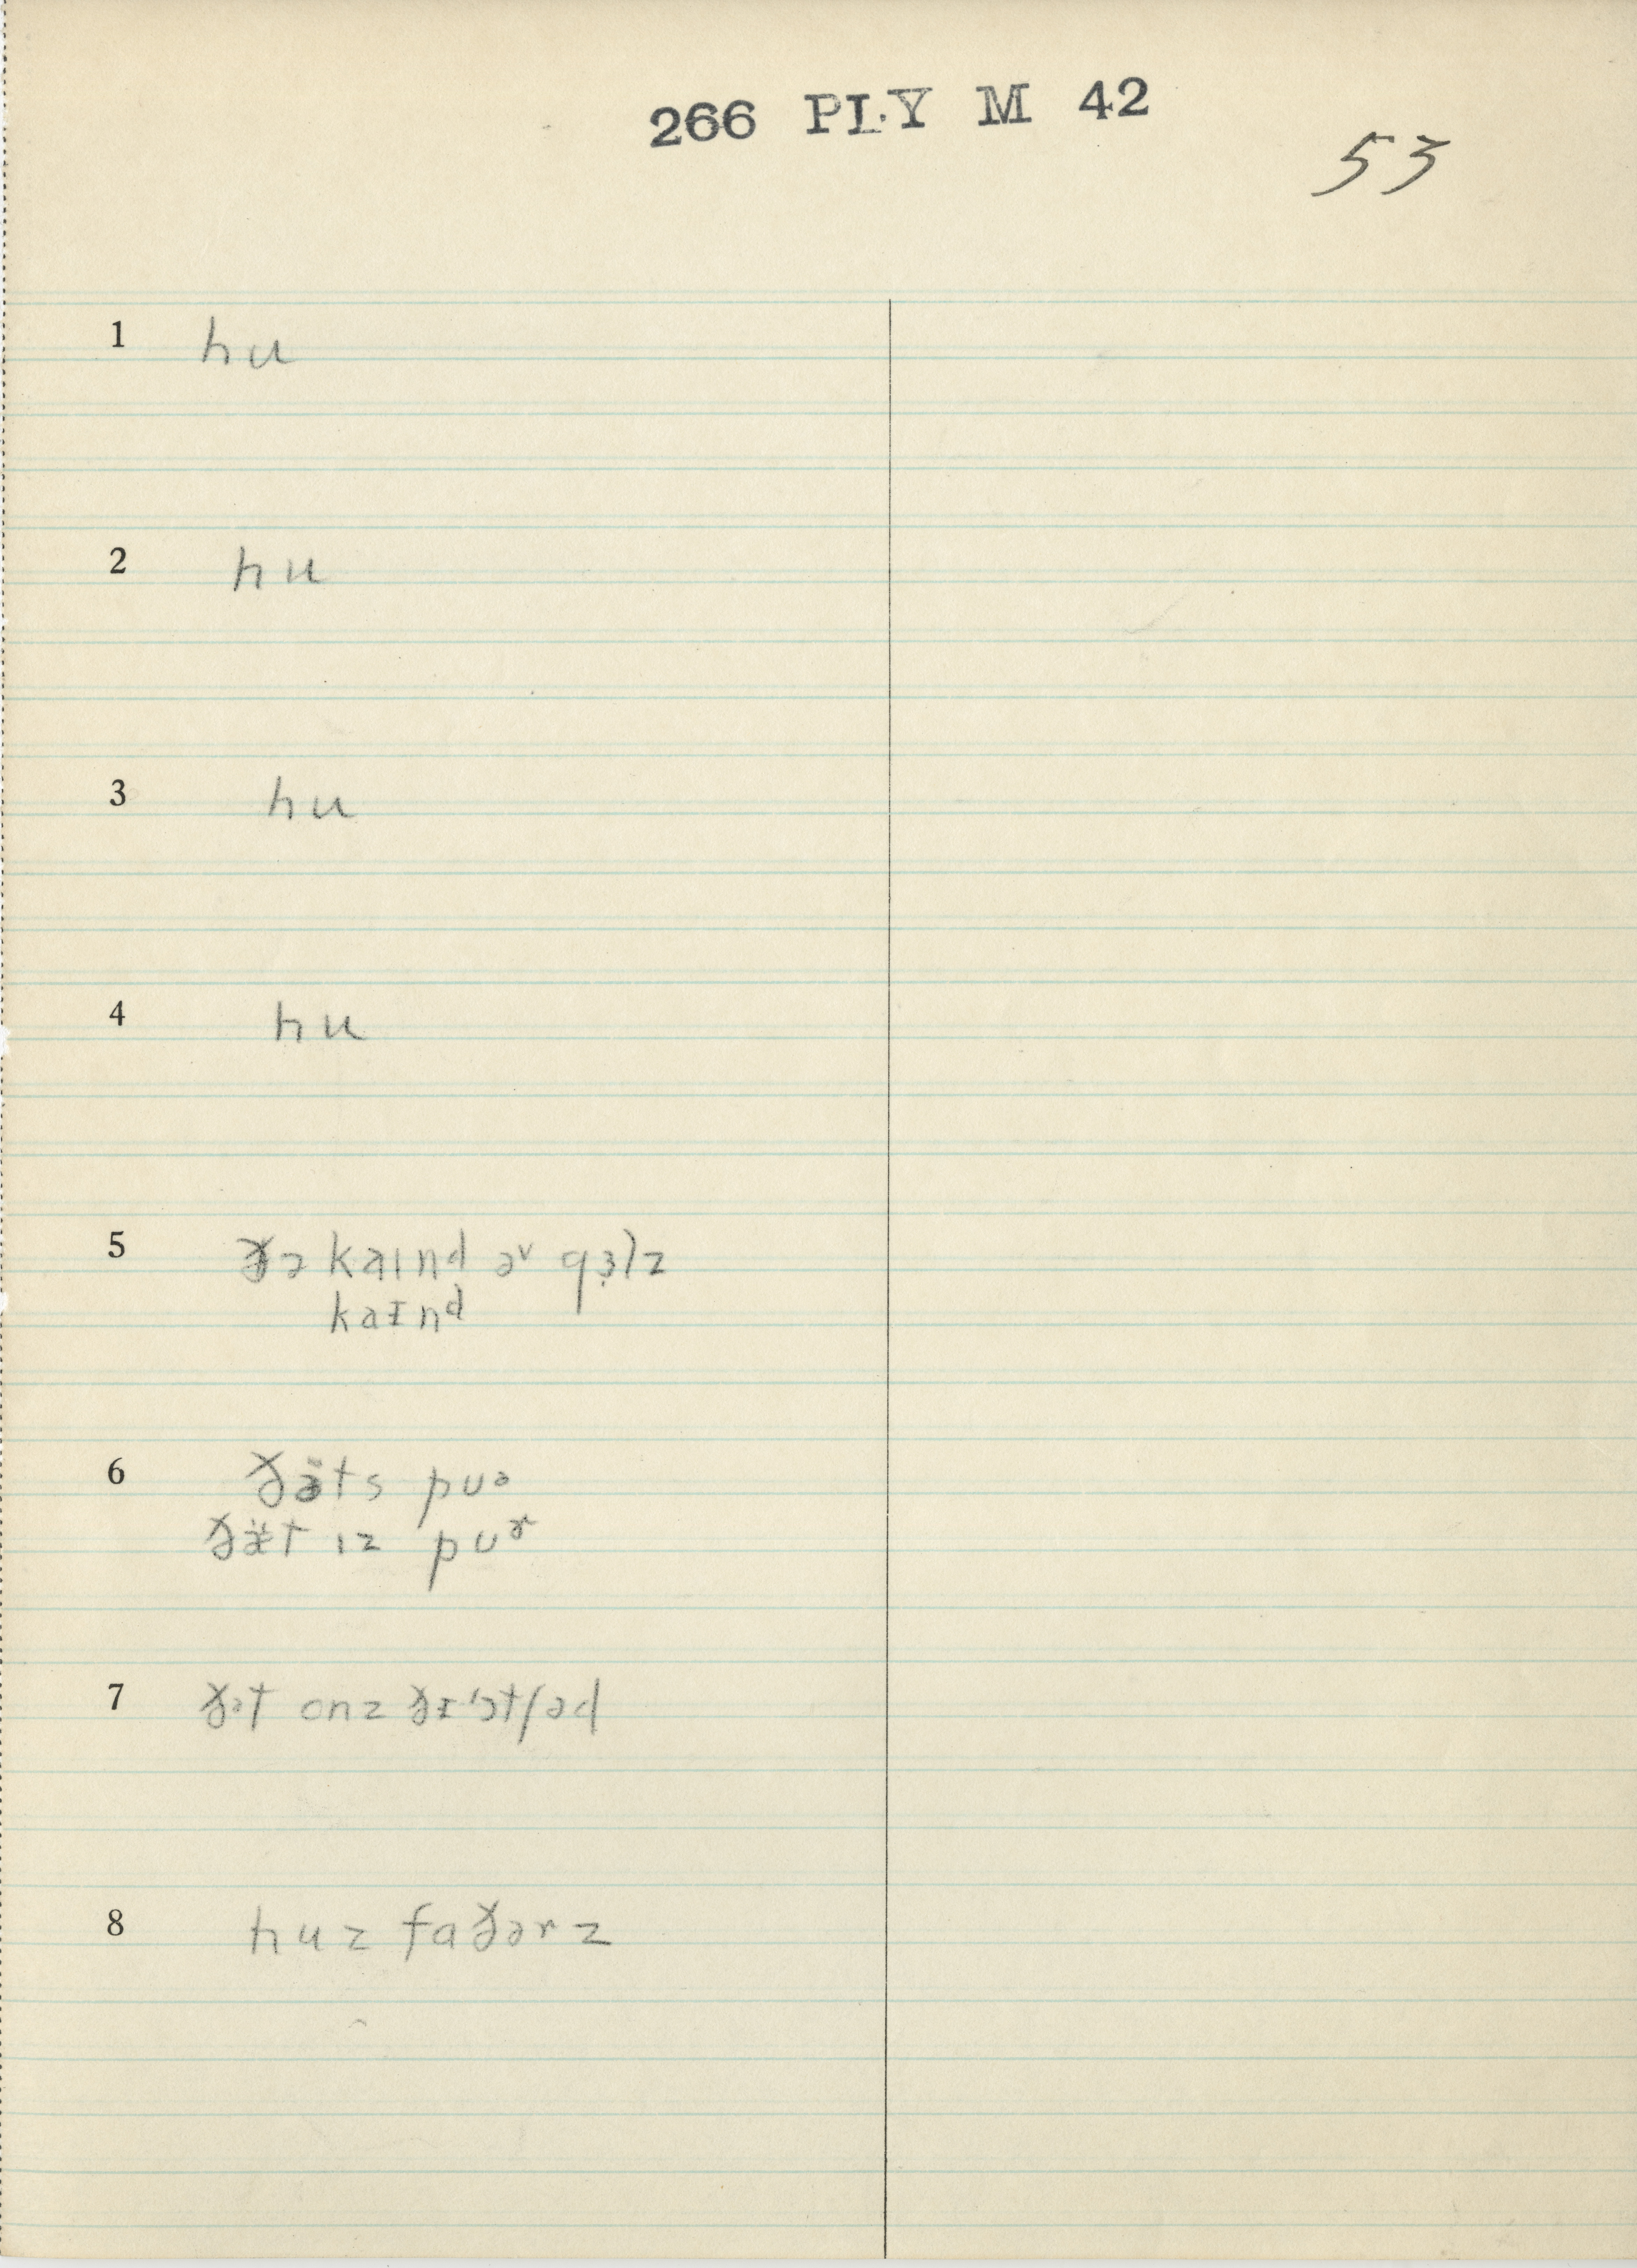 266 PLY M 42
53
1 hu
2 hu
3 hu
4 hu
5 ðə kaɪnd əv gɜlz
kaɪnᵈ
6 ðæ̈ts puᵊ
ðæ̈t ɪz puʳ
7 ðət onz ðɪ ˈɔtʃəd
8 huz faðərz